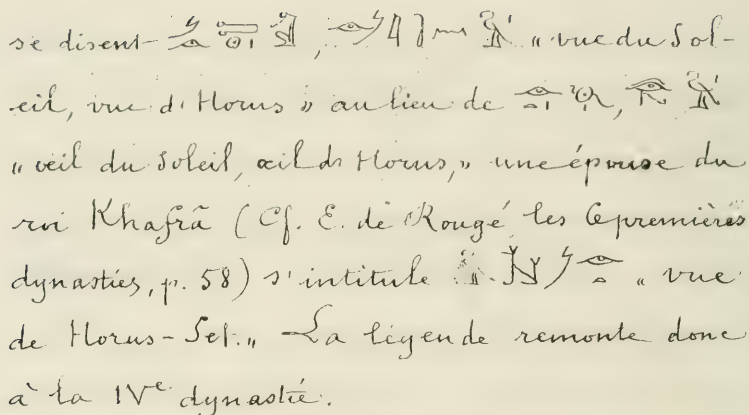 se disent , „ vue du Sol-
eil, vue d'Horus „ au lieu de ,
„ œil du Soleil, œil de Horus, „ une épouse du
roi Khafrâ (Cf. E. de Rougé les 6 premières
dynasties, p. 58) s'intitule „ vue
de Horus-Set. „ La légende remonte donc
à la IVe dynastie.